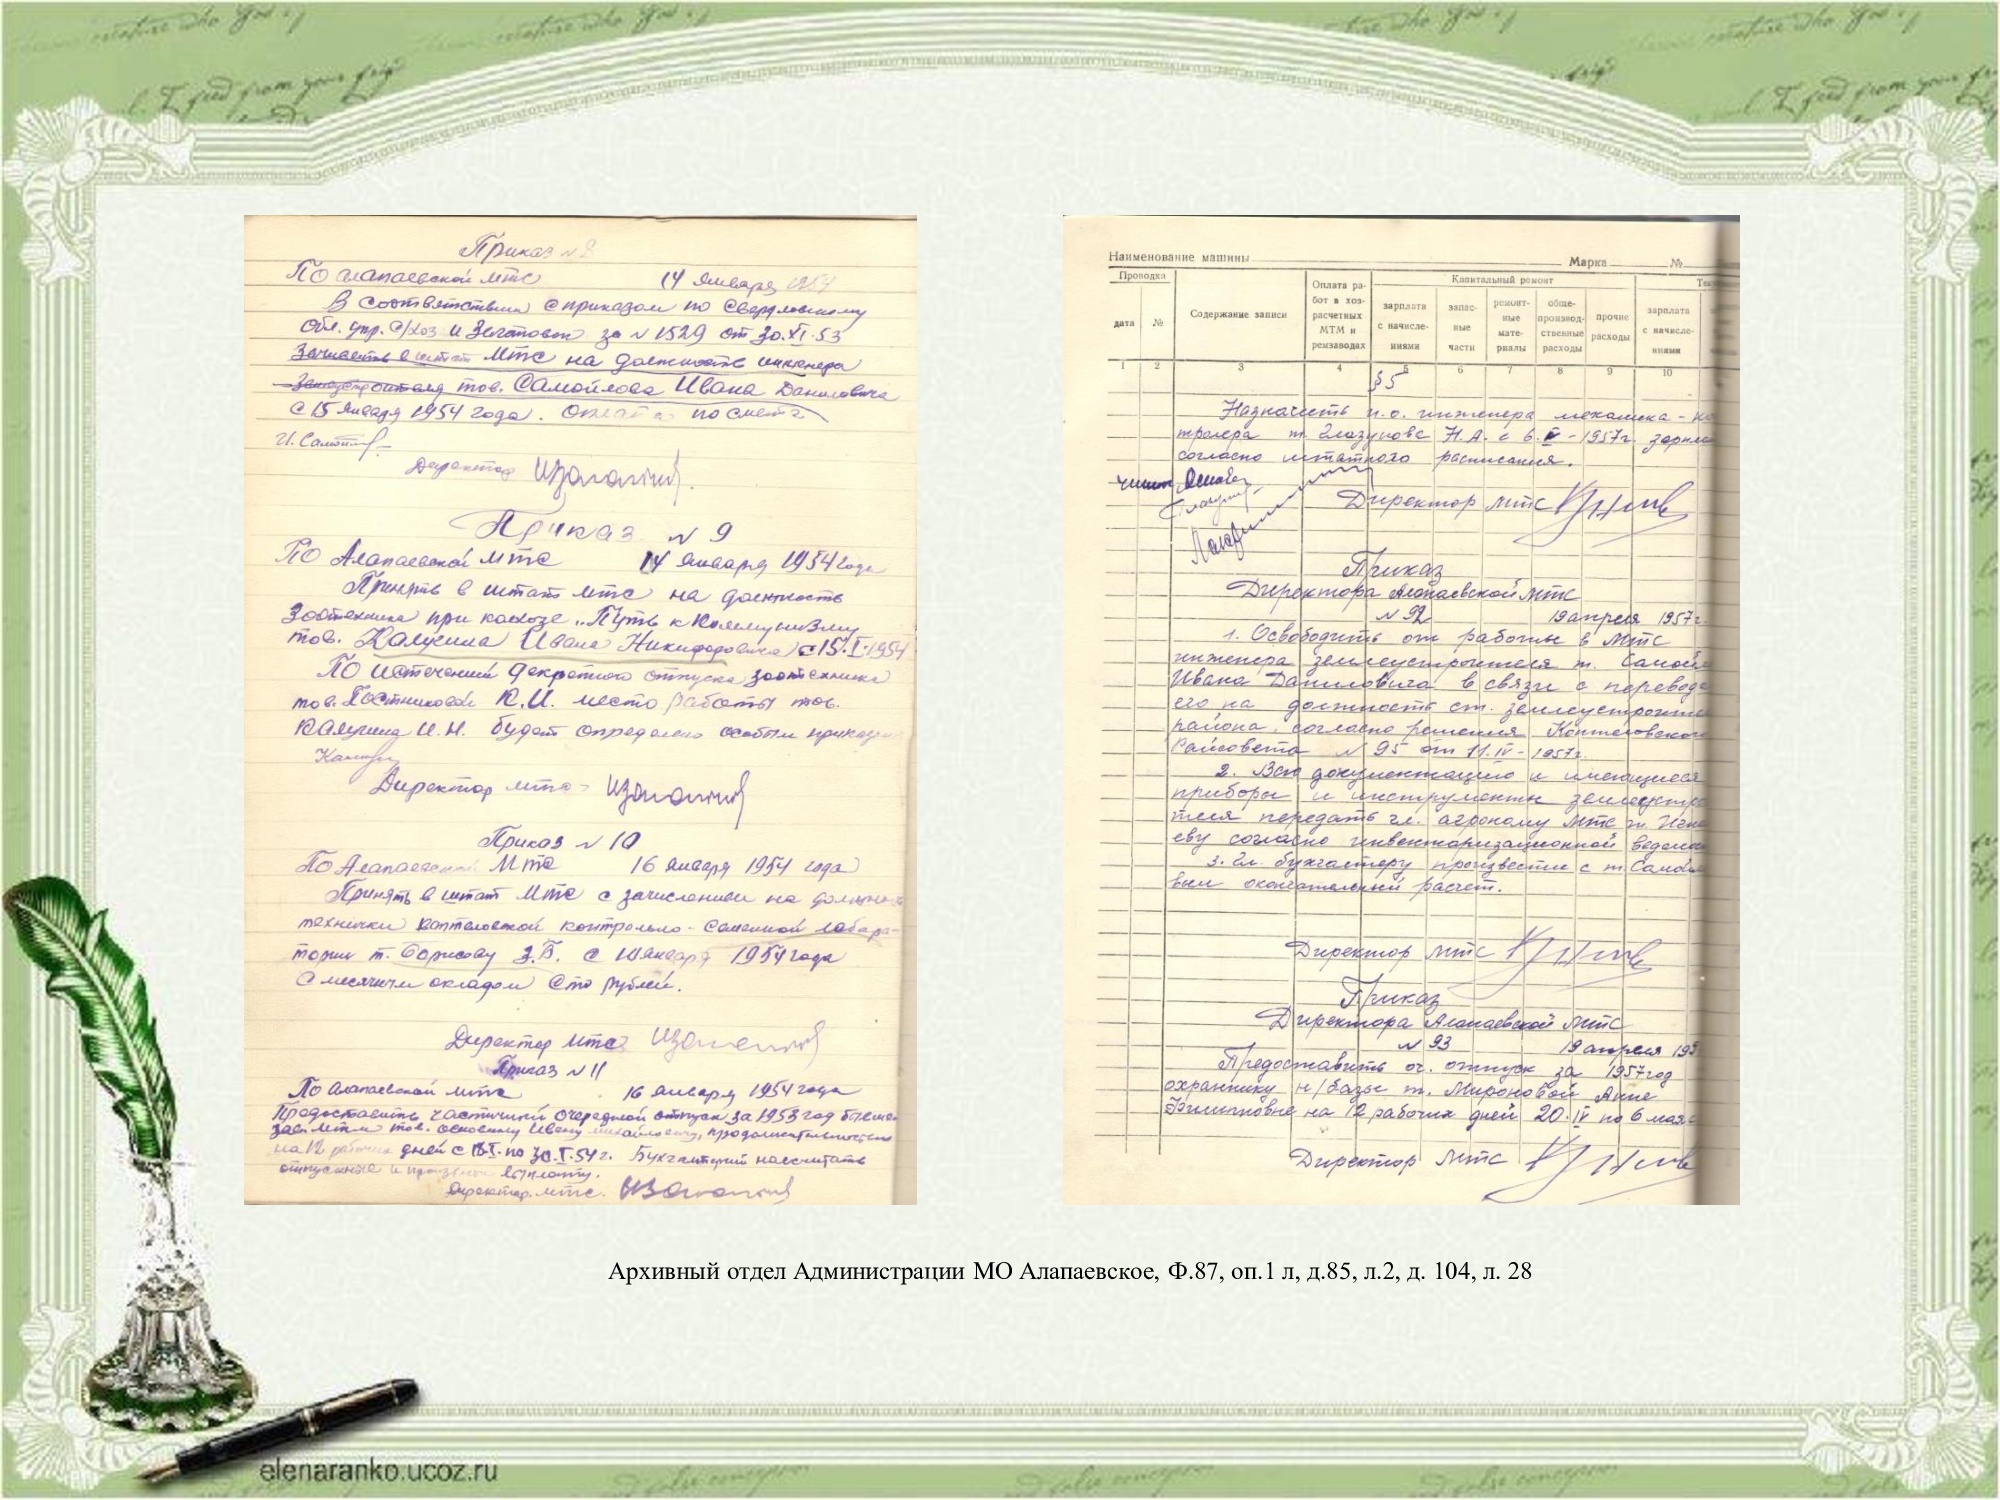 Приказ N 8
По Алапаевской МТС 14 января 1954
В соответствии с приказом по Свердловскому
Обл. упр. с/хоз и Заготовок за N 1529 от 30.XI.53
Зачислить в штат МТС на должность инженера
землеустроителя тов. Самойлова Ивана Даниловича
с 15 января 1954 года. Оплата по смете
Директор
Приказ N 9
По Алапаевской МТС 14 января 1954 года
Принять в штат МТС на должность
Зоотехника при колхозе „Путь к Коммунизму
тов. Калугина Ивана Никифоровича с 15.I.1954
По истечении декретного отпуска зоотехника
тов. Постниковой К.И. место работы тов.
Калугина И.Н. будет определено особым приказом
Директор МТС
Приказ N 10
По Алапаевской МТС 16 января 1954 года
Принять в штат МТС с зачислением на должность
технички Коптеловской контрольно-семенной лабара-
тории т. Борисову З.В. с января 1954 года
С месячным окладом Сто рублей.
Директор МТС
Приказ N 11
По Алапаевской МТС 16 января 1954 года
Предоставить частичный очередной отпуск за 1953 год
зав. МТМ тов. Ивану Михайловичу, продолжительностью
на 12 рабочих дней с по 30.I.54 г. Бухгалтерии насчитать
отпускные и произвести выплату.
Директор МТС.
Наименование машины Марка №
Проводка Содержание записи Оплата ра-бот в хоз-расчетных МТМ и ремзаводах Капитальный ремонт
дата № зарплата с начисле-ниями запас-ные части ремонт-ные мате-риалы обще-производ-ственные расходы прочие расходы зарплата с начисле-ниями
1 2 3 4 5 6 7 8 9 10
§ 5
Назначить и.о. инженера механика-ко
тролера т. Глазунова Н.А. с 6. -1957г. зарпла
согласно штатного расписания.
Директор МТС
Приказ
Директора Алапаевской МТС
N 92 19 апреля 1957г.
1. Освободить от работы в МТС
инженера землеустроителя т. Самойл
Ивана Даниловича в связи с перевода
его на должность ст. землеустроите
района, согласно решения Коптеловского
Райсовета N 95 от 11.IV-1957г.
2. Всю документацию и имеющиеся
приборы и инструменты землеустро
теля передать гл. агроному МТС т.
еву согласно инвентаризационной ведомо
3. Гл. бухгалтеру произвести с т. Самойл
вым окончательный расчет.
Директор МТС
Приказ
Директора Алапаевской МТС
N 93 19 апреля 195
Предоставить оч. отпуск за 1957 год
охраннику н/базы т. Мироновой Анне
Филипповне на 12 рабочих дней 20.IV по 6 мая
Директор МТС
Архивный отдел Администрации МО Алапаевское, Ф.87, оп.1 л, д.85, л.2, д. 104, л. 28
elenaranko.ucoz.ru